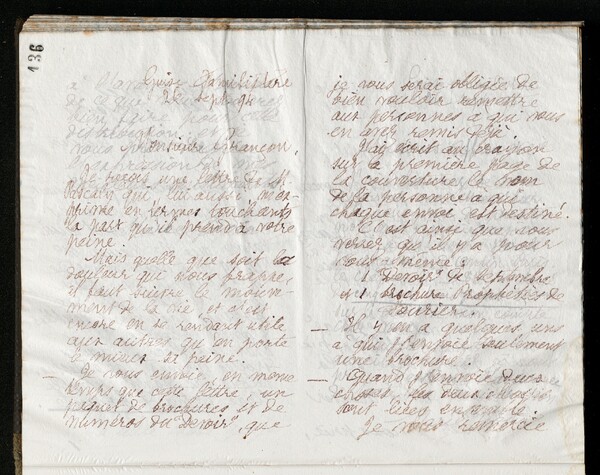 136
Guise Familistère
24 septembre 94
Monsieur Grancon,
Je reçois une lettre de M.
Pascaly qui lui aussi m'ex-
prime en termes touchants
la part qu'il prend à votre
peine.
Mais quelle que soit la
douleur qui nous frappe,
il faut suivre le mouve-
ment de la vie et c'est
encore en se rendant utile
aux autres qu'on porte
le mieux sa peine.
Je vous envoie, en même
temps que cette lettre, un
paquet de brochures et de
numéros du "Devoir", que
je vous serai obligée de
bien vouloir remettre
aux personnes à qui vous
en avez remis déjà.
J'ai écrit au crayon
sur la première page de
la couverture le nom
de la personne à qui
chaque envoi est destiné.
C'est ainsi que vous
verrez qu'il y a pour
vous-même:
1 "Devoir" de septembre
et 1 brochure Prophéties de
Fourier.
Il y en a quelques uns
à qui j'envoie seulement
une brochure.
Quand j'envoie deux
choses, les deux choses
sont liées ensemble.
Je vous remercie